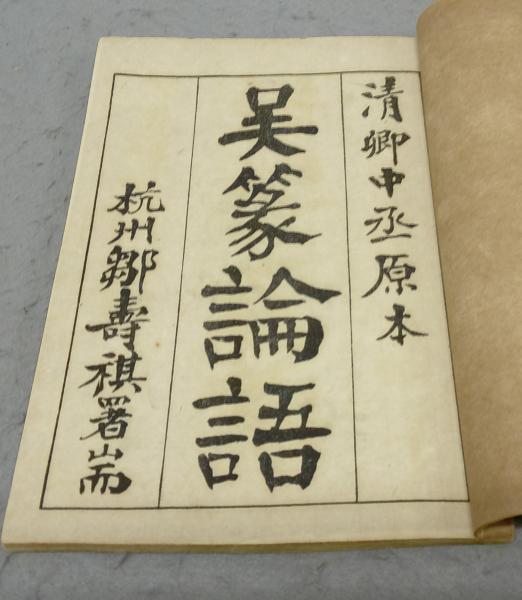 清卿中丞原本
吳篆論語
杭州鄒壽祺署耑